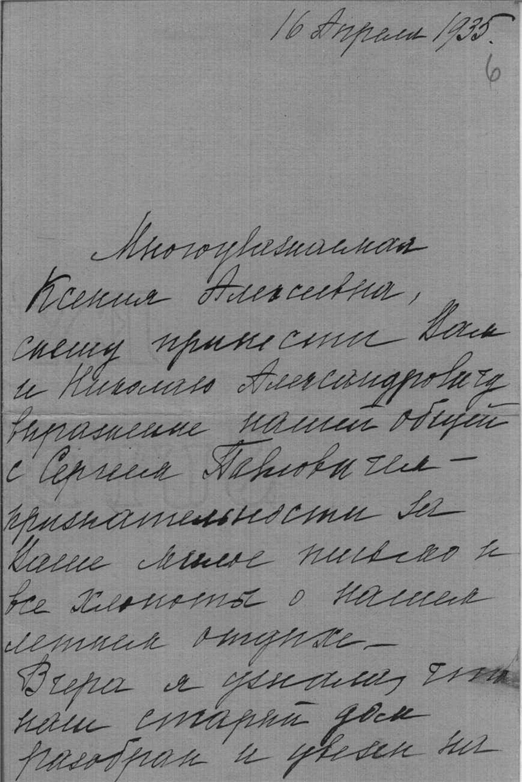 16 Апреля 1935.
6
Многоуважаемая
Ксения Алексеевна,
спешу принести Вам
и Николаю Александровичу
выражение нашей общей
с Сергеем Павловичем —
признательности за
Ваше милое письмо и
все хлопоты о нашем
летнем отдыхе —
Вчера я узнала, что
наш старый дом
разобран и увезен на